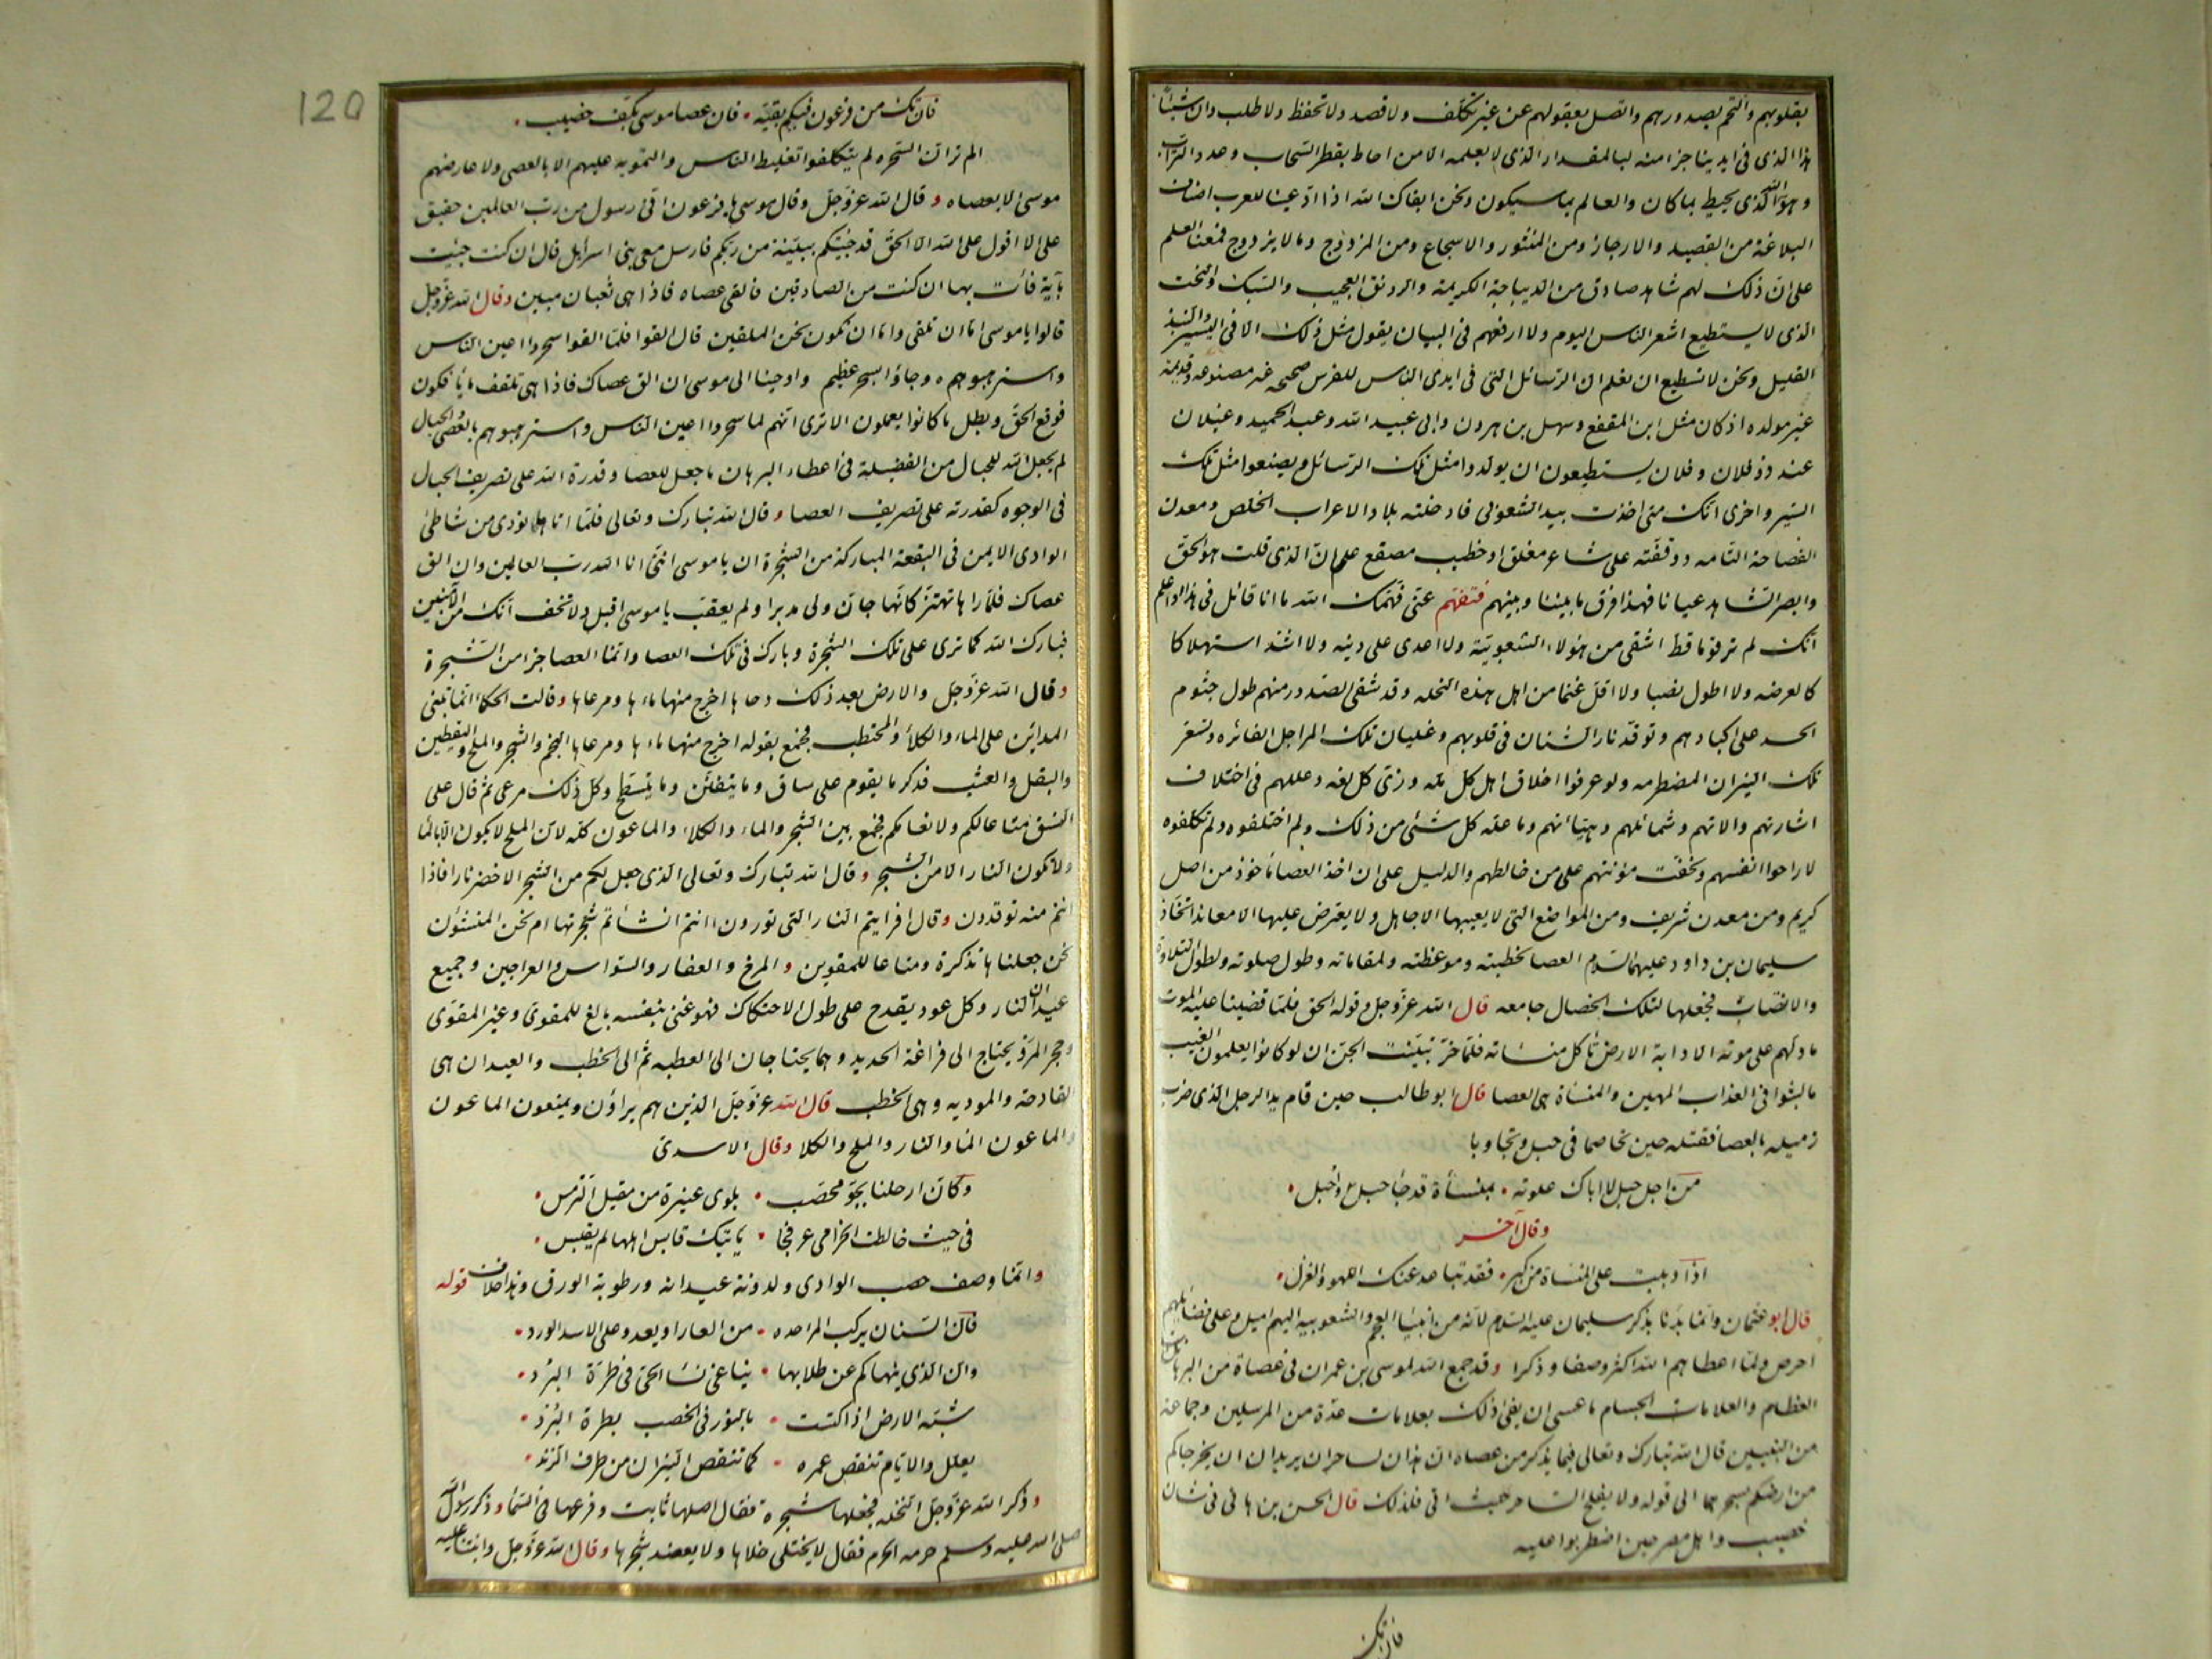 بقلوبهم والتحم بصدورهم واتصل بعقولهم عن غير تكلف ولا قصد ولا تحفظ ولا طلب وان شيئاً
هذا الذى فى ايدينا جزا منه لبالمقدار الذى لا يعلمه الا من احاط بقطر السحاب وعدد التراب
وهو الله الذى يحيط بما كان والعالم بما سيكون ونحن ابقاك الله اذا ادعينا للعرب اصناف
البلاغة من القصيد والارجاز ومن المنثور والاسجاع ومن المزدوج وما لا يزدوج فمعنا العلم
على ان ذلك لهم شاهد صادق من الديباجة الكريمة والرونق العجيب والسبك والنحت
الذى لا يستطيع اشعر الناس اليوم ولا ارفعهم فى البيان يقول مثل ذلك الا فى اليسير والنبذ
القليل ونحن لا نستطيع ان نعلم ان الرسائل التى فى ايدى الناس للفرس صحيحه غير مصنوعه وقديمة
غير مولده اذ كان مثل ابن المقفع وسهل بن هرون وابى عبيد الله وعبد الحميد وغيلان
عند وفلان وفلان يستطيعون ان يولدوا مثل تلك الرسائل ويصنعوا مثل تلك
السير واخرى انك متى اخذت بيد الشعوبى فادخلته بلاد الاعراب الخلص ومعدن
الفصاحة التامه ووقفته على شاعر مغلق او خطيب مصقع علم ان الذى قلت هو الحق
وابصر الشاهد عيانا فهذا فرق ما بيننا وبينهم فتفهم عنى فهمك الله ما انا قائل فى هذا واعلم
انك لم تر قوما قط اشقى من هؤلاء الشعوبية ولا اعدى على دينه ولا اشد استهلاكا
كالعرضه ولا اطول نصبا ولا اقل غنما من اهل هذه النحله وقد شفى الصدور منهم طول جثوم
الحسد على اكبادهم وتوقد نار الشنان فى قلوبهم وغليان تلك المراجل الفائره وتسعر
تلك النيران المضطرمه ولو عرفوا اخلاق اهل كل مله وزى كل لغه وعللهم فى اختلاف
اشارتهم والاتهم وشمائلهم وهيئاتهم وما علة كل شئ من ذلك ولم اختلفوه ولم تكلفوه
لاراحوا انفسهم وتخفت مؤنتهم على من خالطهم والدليل على ان اخذ العصا ماخوذ من اصل
كريم ومن معدن شريف ومن المواضع التى لا يعيبها الا جاهل ولا يعترض عليها الا معاند اتخاذ
سليمان بن داود عليهما السلام العصا لخطبته وموعظته ولمقاماته وطول صلوته ولطول التلاوة
والانتصاب فجعلها لتلك الخصال جامعه قال الله عز وجل وقوله الحق فلما قضينا عليه الموت
ما دلهم على موته الا دابة الارض تأكل منسأته فلما خر تبينت الجن ان لو كانوا يعلمون الغيب
ما لبثوا فى العذاب المهين والمنسأة هى العصا قال ابو طالب حين قام يد الرجل الذى ضرب
زميله بالعصا فقتله حين تخاصما فى حبل وتجاوبا
من اجل حبل لا اباك علوته • بمنسأة قد جأ حبل واحبل •
وقال آخر
اذا دببت على المنساة من كبر • فقد تباعد عنك اللهو والغزل •
قال ابو عثمان وانما بدنا بذكر سليمان عليه السلام لانه من انبيا العجم والشعوبيه اليهم اميل وعلى فضائلهم
احرص ولما اعطاهم الله اكثر وصفا وذكرا وقد جمع الله لموسى بن عمران فى عصاة من البرهانات
العظام والعلامات الجسام ما عسى ان يفى ذلك بعلامات عدة من المرسلين وجماعة
من النبيين قال الله تبارك وتعالى فيما يذكر من عصاه ان هذان لساحران يريدان ان يخرجاكم
من ارضكم بسحرهما الى قوله ولا يفلح الساحر حيث اتى فلذلك قال الحسن بن هانى فى شان
خصيب واهل مصر حين اضطربوا عليه
فان تك
120
فان تك من فرعون فيكم بقية • فان عصا موسى بكف خصيب •
الم تر ان السحره لم يتكلفوا تغليط الناس والتمويه عليهم الا بالعصى ولا عارضهم
موسى الا بعصاه وقال الله عز وجل وقال موسى يا فرعون انى رسول من رب العالمين حقيق
على الا اقول على الله الا الحق قد جئتكم ببينة من ربكم فارسل معى بنى اسرائيل قال ان كنت جئت
بآية فأت بها ان كنت من الصادقين فالقى عصاه فاذا هى ثعبان مبين وقال الله عز وجل
قالوا يا موسى اما ان تلقى واما ان نكون نحن الملقين قال القوا فلما القوا سحروا اعين الناس
واسترهبوهم وجاؤا بسحر عظيم واوحينا الى موسى ان الق عصاك فاذا هى تلقف ما يأفكون
فوقع الحق وبطل ما كانوا يعملون الا ترى انهم لما سحروا اعين الناس واسترهبوهم بالعصى والحبال
لم يجعل الله للحبال من الفضيلة فى اعطاء البرهان ما جعل للعصا وقدرة الله على تصريف الحبال
فى الوجوه كقدرته على تصريف العصا وقال الله تبارك وتعالى فلما اتاها نودى من شاطئ
الوادى الايمن فى البقعة المباركة من الشجرة ان يا موسى اننى انا الله رب العالمين وان الق
عصاك فلما راها تهتز كانها جان ولى مدبرا ولم يعقب يا موسى اقبل ولا تخف انك من الآمنين
فبارك الله كما ترى على تلك الشجرة وبارك فى تلك العصا وانما العصا جزا من الشجرة
وقال الله عز وجل والارض بعد ذلك دحاها اخرج منها ماءها ومرعاها وقالت الحكما انما تبنى
المدائن على الماء والكلأ والمحتطب فجمع بقوله اخرج منها ماءها ومرعاها النجم والشجر والملح واليقطين
والبقل والعشب فذكر ما يقوم على ساق وما يتفنن وما يتسطح وكل ذلك مرعى ثم قال على
النسق متاعا لكم ولانعامكم فجمع بين الشجر والماء والكلاء والماعون كله لان الملح لا يكون الا بالما
ولا تكون النار الا من الشجر وقال الله تبارك وتعالى الذى جعل لكم من الشجر الاخضر نارا فاذا
انتم منه توقدون وقال افرايتم النار التى تورون اانتم انشأتم شجرتها ام نحن المنشئون
نحن جعلناها تذكرة ومتاعا للمقوين والمرخ والعفار والسواس والعراجين وجميع
عيدان النار وكل عود يقدح على طول الاحتكاك فهو غنى بنفسه بالغ للمقوى وغير المقوى
وحجر المرو يحتاج الى قراعة الحديد وهما يحتاجان الى العطبه ثم الى الحطب والعيدان هى
القادحة والموديه وهى الحطب قال الله عز وجل الذين هم يراؤن ويمنعون الماعون
والماعون الما والنار والملح والكلا وقال الاسدى
وكان ارحلنا بجو محصب • بلوى عنيزة من مقيل الترمس •
فى حيث خالطت الخزامى عرفجا • ياتيك قابس اهلها لم يقبس •
وانما وصف خصب الوادى ولدونة عيدانه ورطوبة الورق وهذا خلاف قوله
فان السنان يركب المرا حده • من العار او يعدو على الاسد الورد •
وان الذى ينهاكم عن طلابها • يناغى نسا الحى فى طرة البرد •
شبه الارض اذا اكتست • بالنور فى الخصب بطرة البرد •
يعلل والايام تنقص عمره • كما تنقص النيران من طرف الزند •
وذكر الله عز وجل النخله فجعلها شجرة فقال اصلها ثابت وفرعها فى السما وذكر رسول الله
صلى الله عليه وسلم حرمه الحرم فقال لا يختلى خلاها ولا يعضد شجرها وقال الله عز وجل وانبتنا عليه